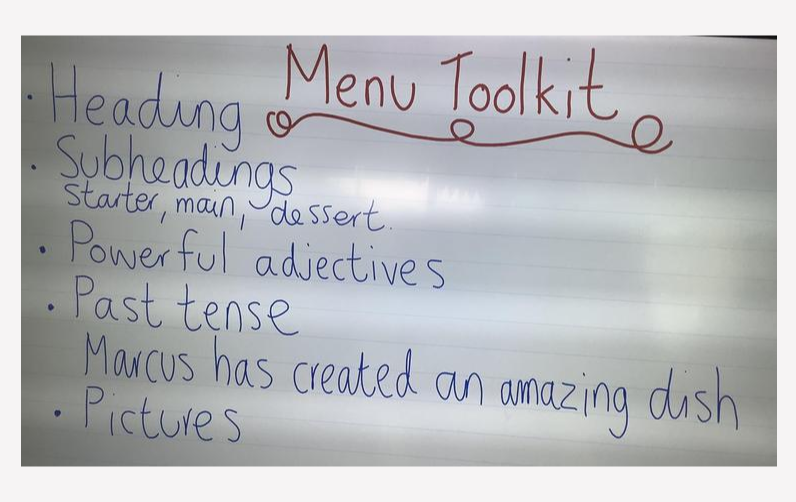 Menu Toolkit
• Heading
• Subheadings
starter, main, dessert.
• Powerful adjectives
• Past tense
Marcus has created an amazing dish
• Pictures